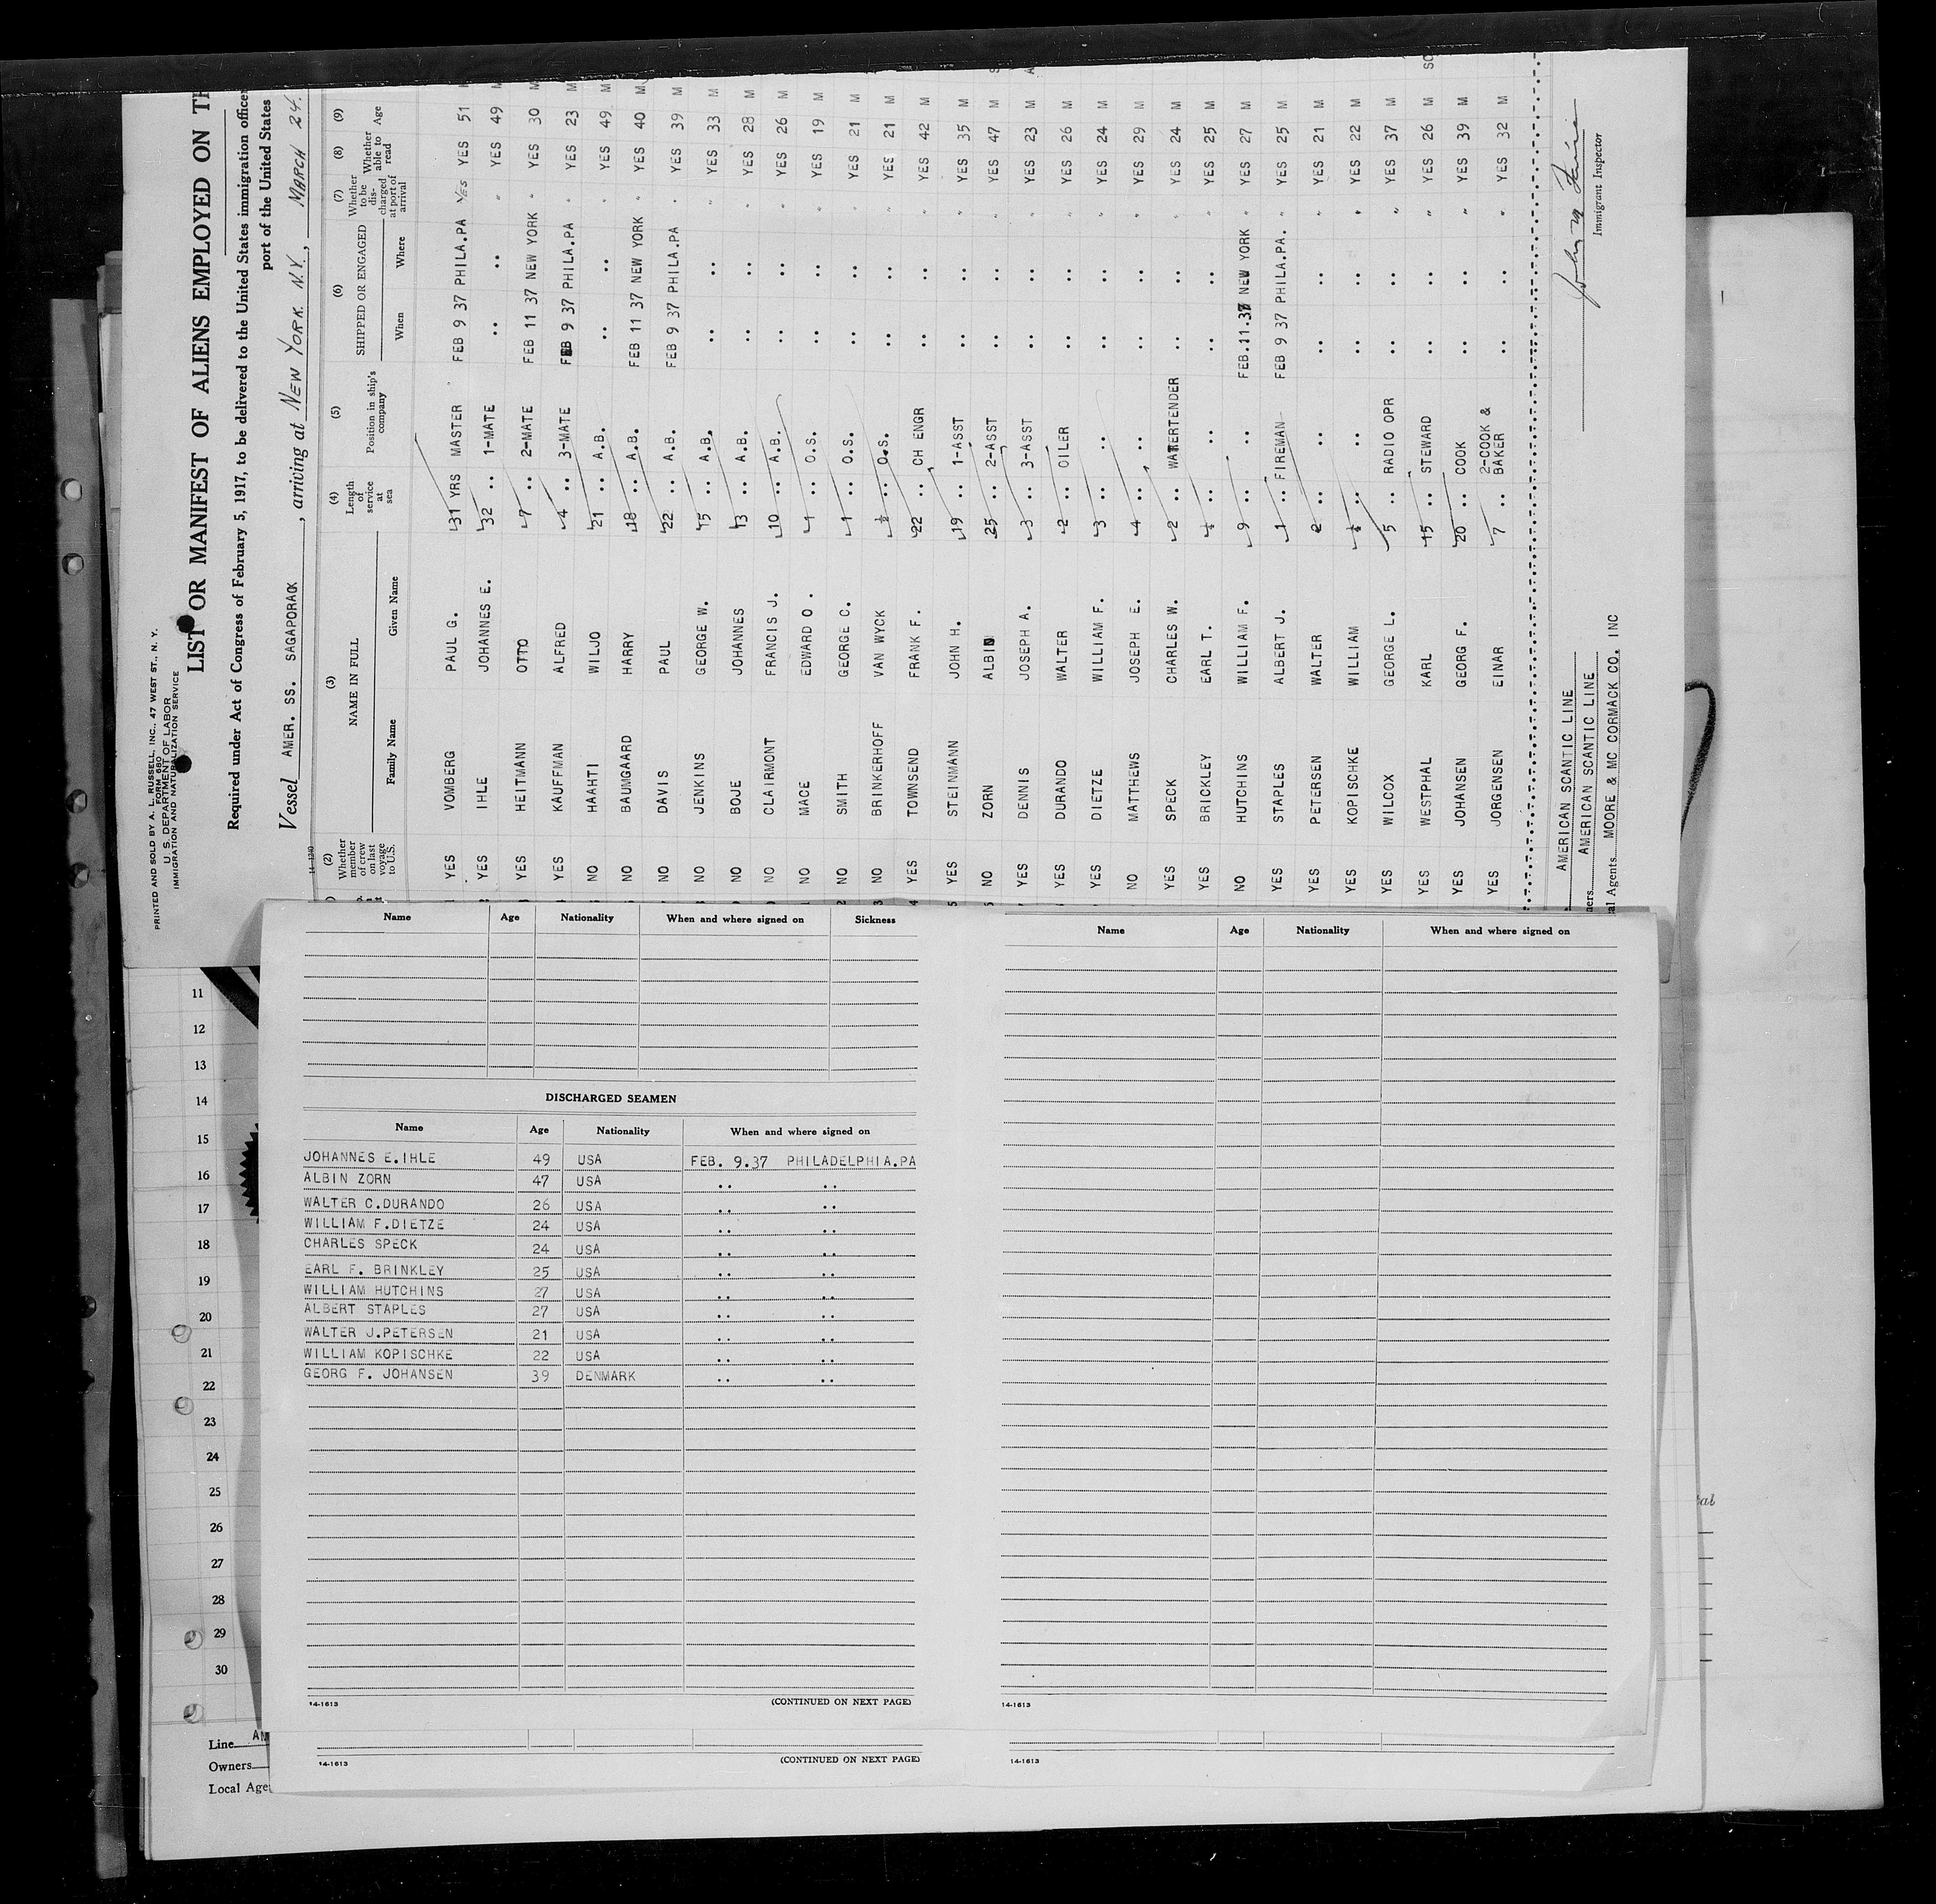 PRINTED AND SOLD BY A. L. RUSSELL, INC., 47 WEST ST., N. Y.
FORM 680
U. S. DEPARTMENT OF LABOR
IMMIGRATION AND NATURALIZATION SERVICE
LIST OR MANIFEST OF ALIENS EMPLOYED ON
Required under Act of Congress of February 5, 1917, to be delivered to the United States immigration officer
port of the United States
Vessel AMER. SS. SAGAPORACK, arriving at NEW YORK N.Y., MARCH 24.
(2) Whether member of crew on last voyage to U.S. (3) NAME IN FULL Family Name Given Name (4) Length of service at sea (5) Position in ship's company (6) SHIPPED OR ENGAGED When Where (7) Whether to be discharged at port of arrival (8) Whether able to read (9) Age
YES VOMBERG PAUL G. 31 YRS MASTER FEB 9 37 PHILA.PA YES YES 51
YES IHLE JOHANNES E. 32 .. 1-MATE .. .. " YES 49 M
YES HEITMANN OTTO 7 .. 2-MATE FEB 11 37 NEW YORK " YES 30 M
YES KAUFFMAN ALFRED 4 .. 3-MATE FEB 9 37 PHILA.PA " YES 23 M
NO HAAHTI WILJO 21 .. A.B. .. .. " YES 49 M
NO BAUMGAARD HARRY 18 .. A.B. FEB 11 37 NEW YORK " YES 40 M
NO DAVIS PAUL 22 .. A.B. FEB 9 37 PHILA.PA " YES 39 M
NO JENKINS GEORGE W. 15 .. A.B. .. .. " YES 33 M
NO BOJE JOHANNES 13 .. A.B. .. .. " YES 28 M
NO CLAIRMONT FRANCIS J. 10 .. A.B. .. .. " YES 26 M
NO MACE EDWARD O. 1 .. O.S. .. .. " YES 19 M
NO SMITH GEORGE C. 1 .. O.S. .. .. " YES 21 M
NO BRINKERHOFF VAN WYCK .. O.S. .. .. " YES 21 M
YES TOWNSEND FRANK F. 22 .. CH ENGR .. .. " YES 42 M
YES STEINMANN JOHN H. 19 .. 1-ASST .. .. " YES 35 M
NO ZORN ALBIN 25 .. 2-ASST .. .. " YES 47 M
YES DENNIS JOSEPH A. 3 .. 3-ASST .. .. " YES 23 M
YES DURANDO WALTER 2 .. OILER .. .. " YES 26 M
YES DIETZE WILLIAM F. 3 .. .. .. .. " YES 24 M
NO MATTHEWS JOSEPH E. 4 .. .. .. .. " YES 29 M
YES SPECK CHARLES W. 2 .. WATERTENDER .. .. " YES 24 M
YES BRICKLEY EARL T. .. .. .. .. " YES 25 M
NO HUTCHINS WILLIAM F. 9 .. .. FEB.11.37 NEW YORK " YES 27 M
YES STAPLES ALBERT J. 1 .. FIREMAN FEB 9 37 PHILA.PA. " YES 25 M
YES PETERSEN WALTER 2 .. .. .. .. " YES 21 M
YES KOPISCHKE WILLIAM .. .. .. .. " YES 22 M
YES WILCOX GEORGE L. 5 .. RADIO OPR .. .. " YES 37 M
YES WESTPHAL KARL 15 .. STEWARD .. .. " YES 26 M
YES JOHANSEN GEORG F. 20 .. COOK .. .. " YES 39 M
YES JORGENSEN EINAR 7 .. 2-COOK & BAKER .. .. " YES 32 M
AMERICAN SCANTIC LINE
ners AMERICAN SCANTIC LINE
al Agents MOORE & MC CORMACK CO. INC
Immigrant Inspector
Name Age Nationality When and where signed on Sickness
DISCHARGED SEAMEN
Name Age Nationality When and where signed on
JOHANNES E.IHLE 49 USA FEB. 9.37 PHILADELPHIA.PA
ALBIN ZORN 47 USA .. ..
WALTER C.DURANDO 26 USA .. ..
WILLIAM F.DIETZE 24 USA .. ..
CHARLES SPECK 24 USA .. ..
EARL F. BRINKLEY 25 USA .. ..
WILLIAM HUTCHINS 27 USA .. ..
ALBERT STAPLES 27 USA .. ..
WALTER J.PETERSEN 21 USA .. ..
WILLIAM KOPISCHKE 22 USA .. ..
GEORG F. JOHANSEN 39 DENMARK .. ..
14-1613 (CONTINUED ON NEXT PAGE)
Name Age Nationality When and where signed on
14-1613
14-1613 (CONTINUED ON NEXT PAGE)
14-1613
11
12
13
14
15
16
17
18
19
20
21
22
23
24
25
26
27
28
29
30
Line
Owners
Local Age
tal